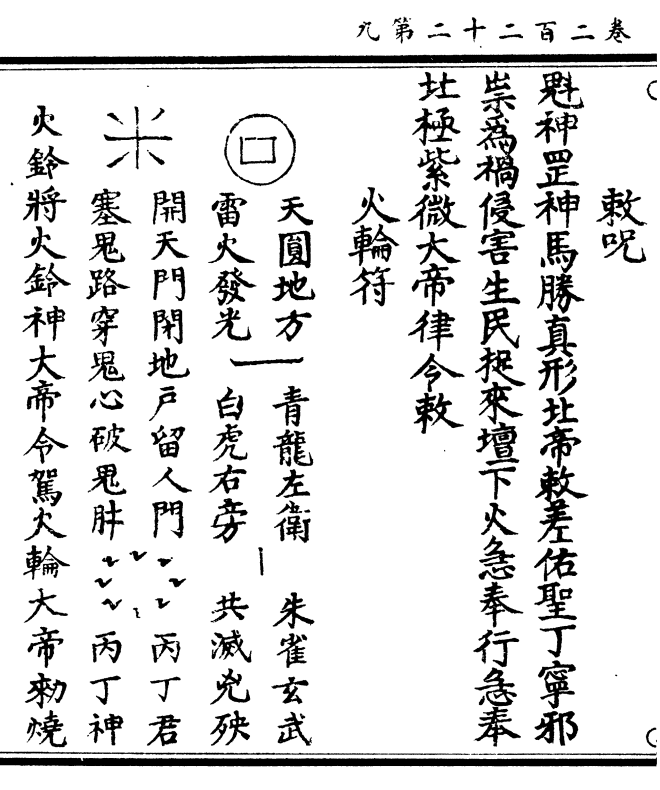 卷二百二十二第九
敕呪
魁神罡神馬勝真形北帝敕差佑聖丁寧邪
祟為禍侵害生民捉來壇下火急奉行急奉
北極紫微大帝律令敕
火輪符
天圓地方 青龍左衛 朱雀玄武
雷火發光 白虎右旁 共滅兇殃
開天門閉地戶留人門 丙丁君
塞鬼路穿鬼心破鬼肚 丙丁神
火鈴將火鈴神大帝令駕火輪大帝勑燒